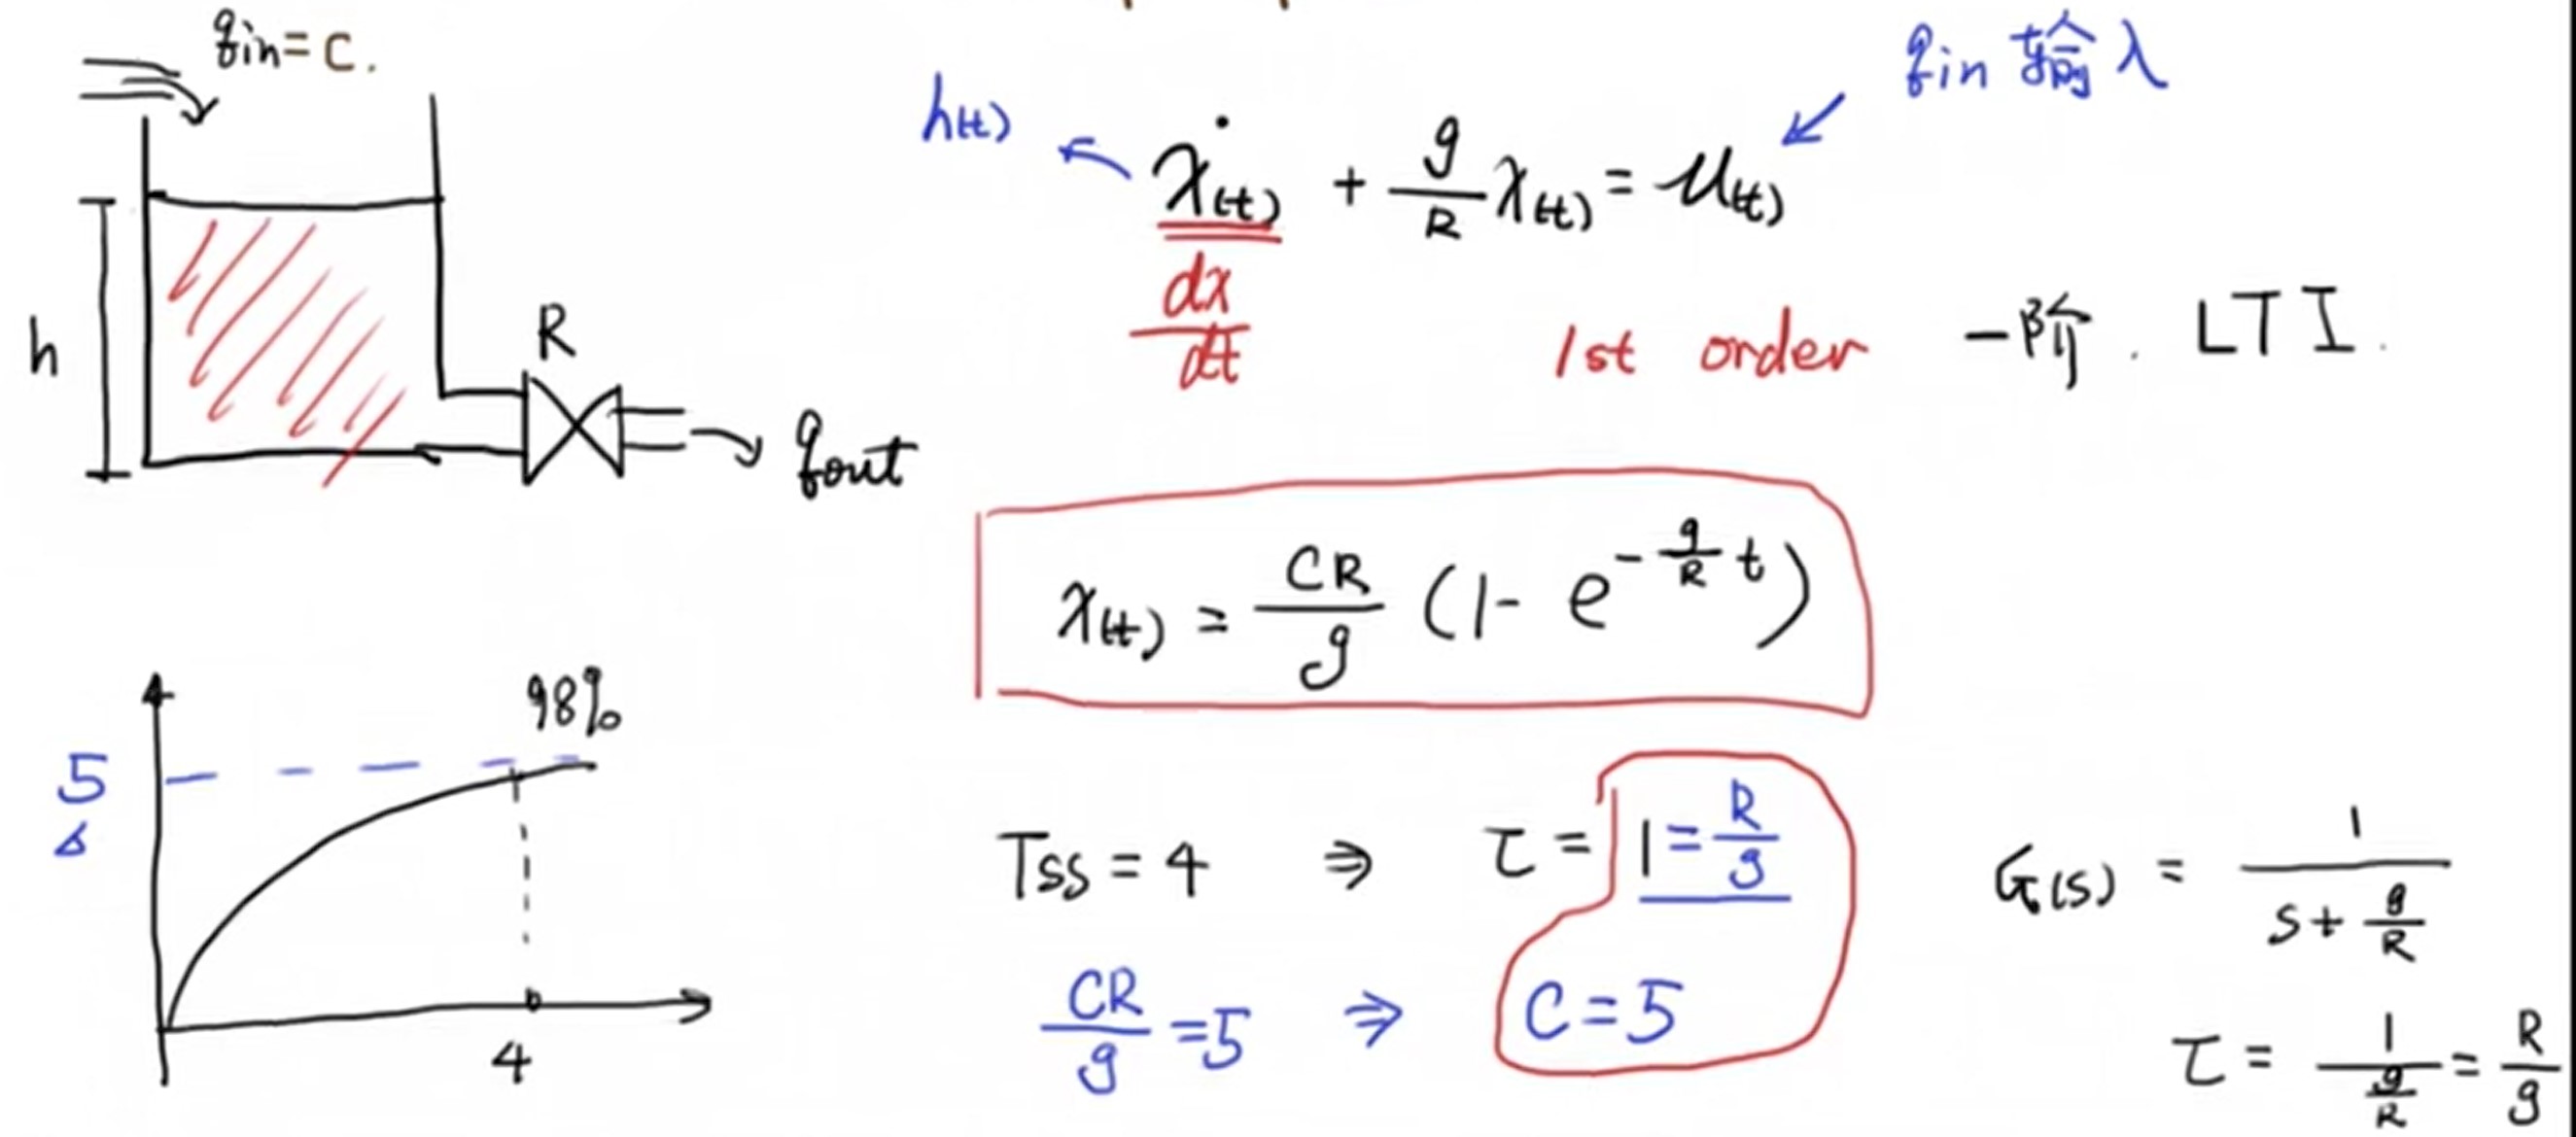 qin = C.
h
R
qout
h(t)
qin 输入
ẋ(t) + g/R x(t) = u(t)
dx/dt
1st order 一阶. LTI.
x(t) = CR/g (1 - e^(-g/R t))
98%
5
4
Tss = 4 ⇒ τ = 1 = R/g
CR/g = 5 ⇒ C = 5
G(s) = 1/(s + g/R)
τ = 1/(g/R) = R/g